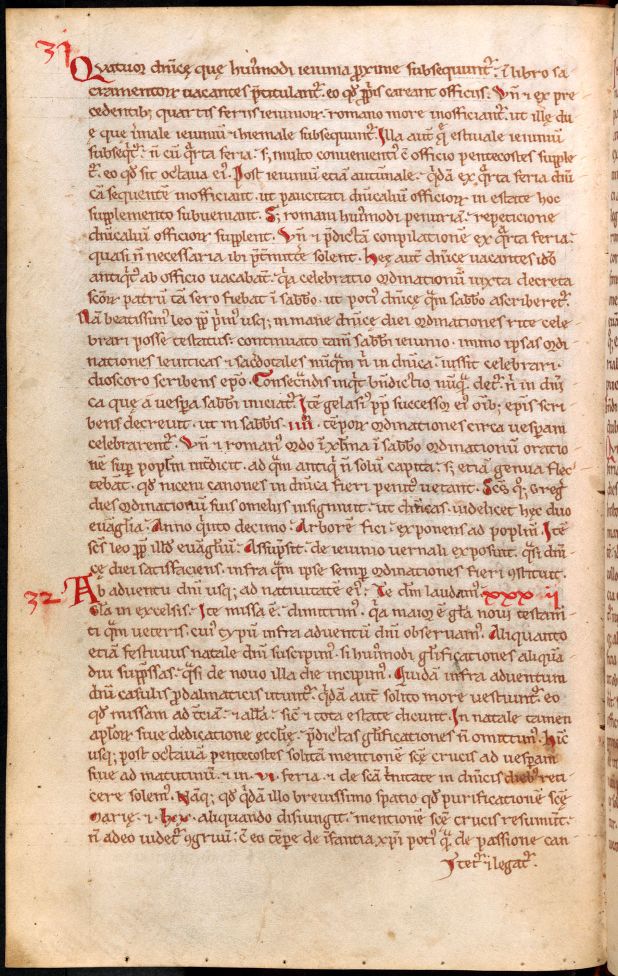 31
Quatuor dnicę quę hui'modi ieiunia proxime subsequunt'. i libro sa
cramentorum uacantes p'titulant'. eo qd ppriis careant officiis. Vn & ex pre
cedentib; quartis feriis ieiuniorum. romano more inofficiant'. ut illę du
e que inale ieiuniu & hiemale subsequunt'. Illa aut q estiuale ieiuniu
subseqt'. n cu qrta feria. s; multo conuenienti' e officio pentecostes supple
t'. eo qd sit octaua ei'. Post ieiuniu etia autunale. qda ex qrta feria dni
ca sequente inofficiant. ut paucitati dnicaliu officiorum in estate hoc
supplemento subueniant. S; romani hui'modi penuria. repeticione
dnicaliu officiorum supplent. Vn & pdicta conpilatione ex qrta feria.
quasi n necessaria ibi ptmitte solent. Hęę aut dnicę uacantes ido
antiqt' ab officio uacabat. qa celebratio ordinationu iuxta decreta
scorum patru ta sero fiebat i sabbo. ut poti' dnicę qm sabbo ascriberet'.
Na beatissim' leo pp pm' usq; in mane dnicę diei ordinationes rite cele
brari posse testatus. continuato tam sabbi ieiunio. immo ipsas ordi
nationes leuiticas & sacdotales nuqm n in dnica. iussit celebrari.
dioscoro scribens epo. Consecndis inqt bndictio, nuq. det' n in dni
ca que a uespa sabbi iniciat'. Ite gelasi' pp successor ei' omb; epis scri
bens decreuit. ut in sabbis .IIII. tepor ordinationes circa uesperam
celebrarent'. Vn & roman' ordo i xbma i sabbo ordinationu oratio
ne sup poplm intdicit. ad qm antiq n solu capita. s; etia genua flec
tebat. qd niceni canones in dnica fieri penit' uetant. Scs q; greg'
dies ordinationu suis omeliis insigniuit. ut dnicas. uidelicet hęc duo
euaglia. Anno qnto decimo. Arbore fici. exponens ad poplm. Ite
scs leo pp illd euaglm. Assupsit. de ieiunio uernali exposuit. qsi dni
cę diei satisfaciens. infra qm ipse semp ordinationes fieri 9stituit.
32 Ab aduentu dni usq; ad natiuitate ei'. Te dm laudam'. XXXII
Gla in excelsis. Ite missa e. dimittim'. qa maior e gla noui testam
ti qm ueteris. cui' typu infra aduentu dni obseruam'. Aliquanto
etia festiuius natale dni suscipim'. si hui'modi glificationes aliqua
diu suppssas. qsi de nouo illa die incipim'. Quida infra aduentum
dni casulis p dalmaticis utunt'. qda aut solito more uestiunt'. eo
qd missam ad tcia. & alla. sic & tota estate dicunt. In natale tamen
aplorum siue dedicatione ecclię. pdictas glificationes n omittim'. Hinc
usq; post octaua pentecostes solita mentione scę crucis ad uesperam
siue ad matutinu. & in .VI. feria. & de sca tnitate in dnicis diebus reti
cere solem'. Naq; qd qda illo breuissimo spatio qd purificatione scę
marię. & aliquando disiungit. mentione scę crucis resumunt.
n adeo uidet' 9gruu. e eo tepe de infantia xpi poti' q de passione can
tet' & legat'.